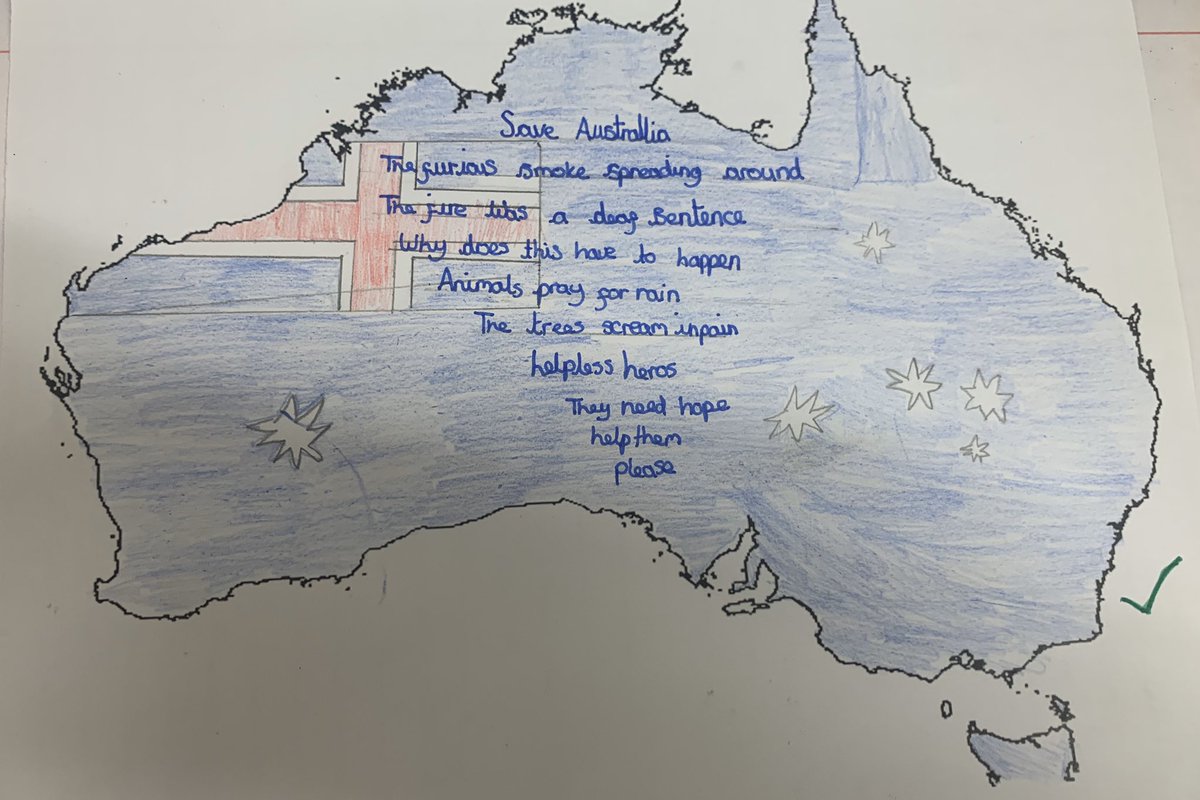 Save Australlia
The furious smoke spreading around
The fire was a deaf sentence
Why does this have to happen
Animals pray for rain
The trees scream in pain
helpless heros
They need hope
help them
please